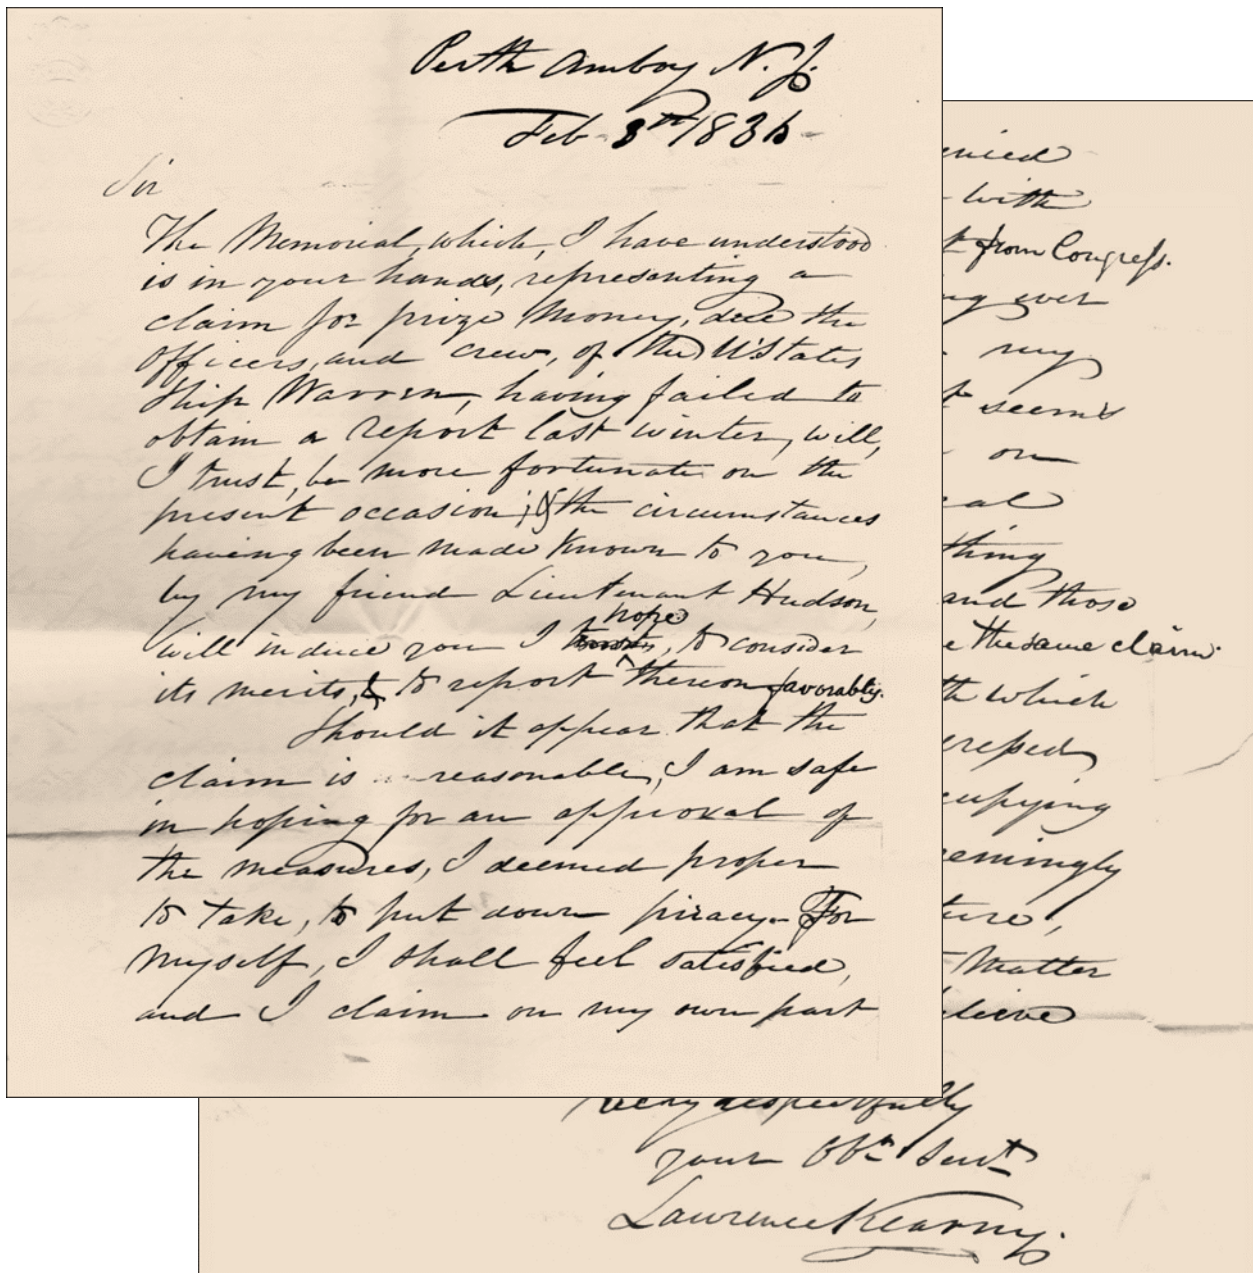 Perth Amboy N. J.
Feb 3rd 1836
Sir
The Memorial, which, I have understood
is in your hands, representing a
claim for prize money, due the
officers, and crew, of the UStates
Ship Warren, having failed to
obtain a report last winter, will,
I trust, be more fortunate on the
present occasion; & the circumstances
having been made known to you,
by my friend Lieutenant Hudson,
hope
will induce you I trust, to consider
its merits, & to report thereon favorably.
Should it appear that the
claim is reasonable, I am safe
in hoping for an approval of
the measures, I deemed proper
to take, to put down piracy. For
myself, I shall feel satisfied,
and I claim on my own part
with
from Congress.
ever
my
seems
on
and those
the same claim.
which
Matter
Very respectfully
your Obt Servt
Lawrence Kearny.